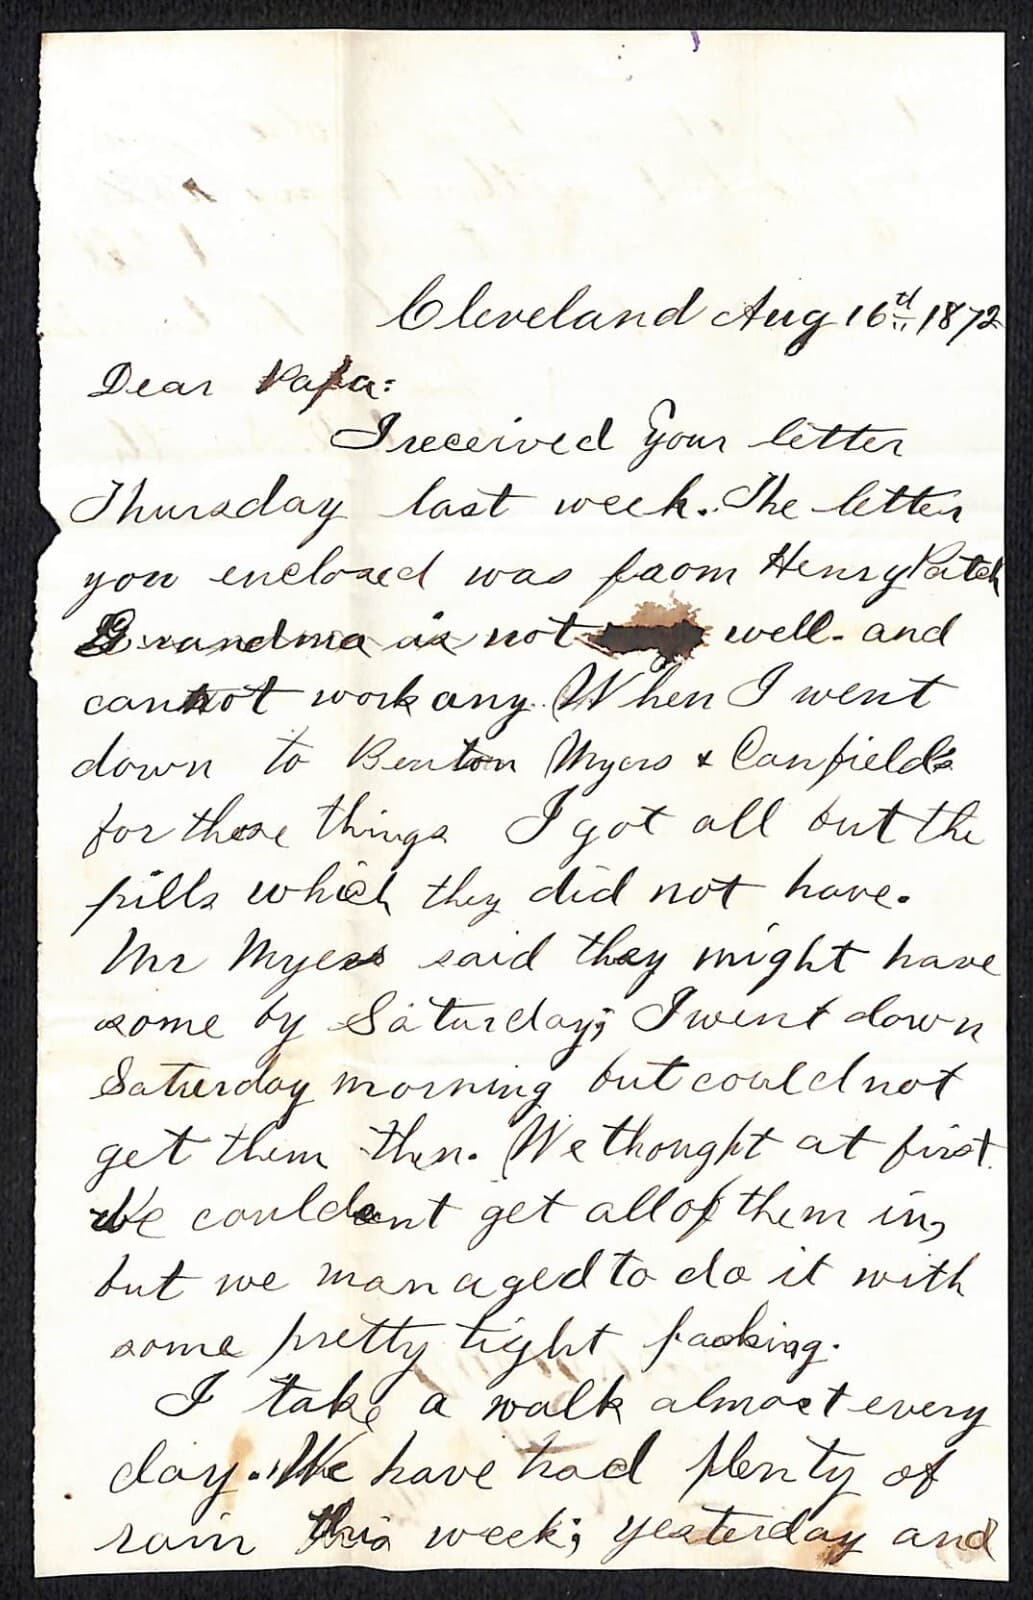 Cleveland Aug 16th 1872
Dear Papa:
I received your letter
Thursday last week. The letter
you enclosed was from Henry Patch
Grandma is not well. and
cannot work any. When I went
down to Benton Myers & Canfields
for those things I got all but the
pills which they did not have.
Mr Myers said they might have
some by Saturday; I went down
Saturday morning but could not
get them then. We thought at first
We couldent get all of them in,
but we managed to do it with
some pretty tight packing.
I take a walk almost every
day. We have had plenty of
rain this week; yesterday and